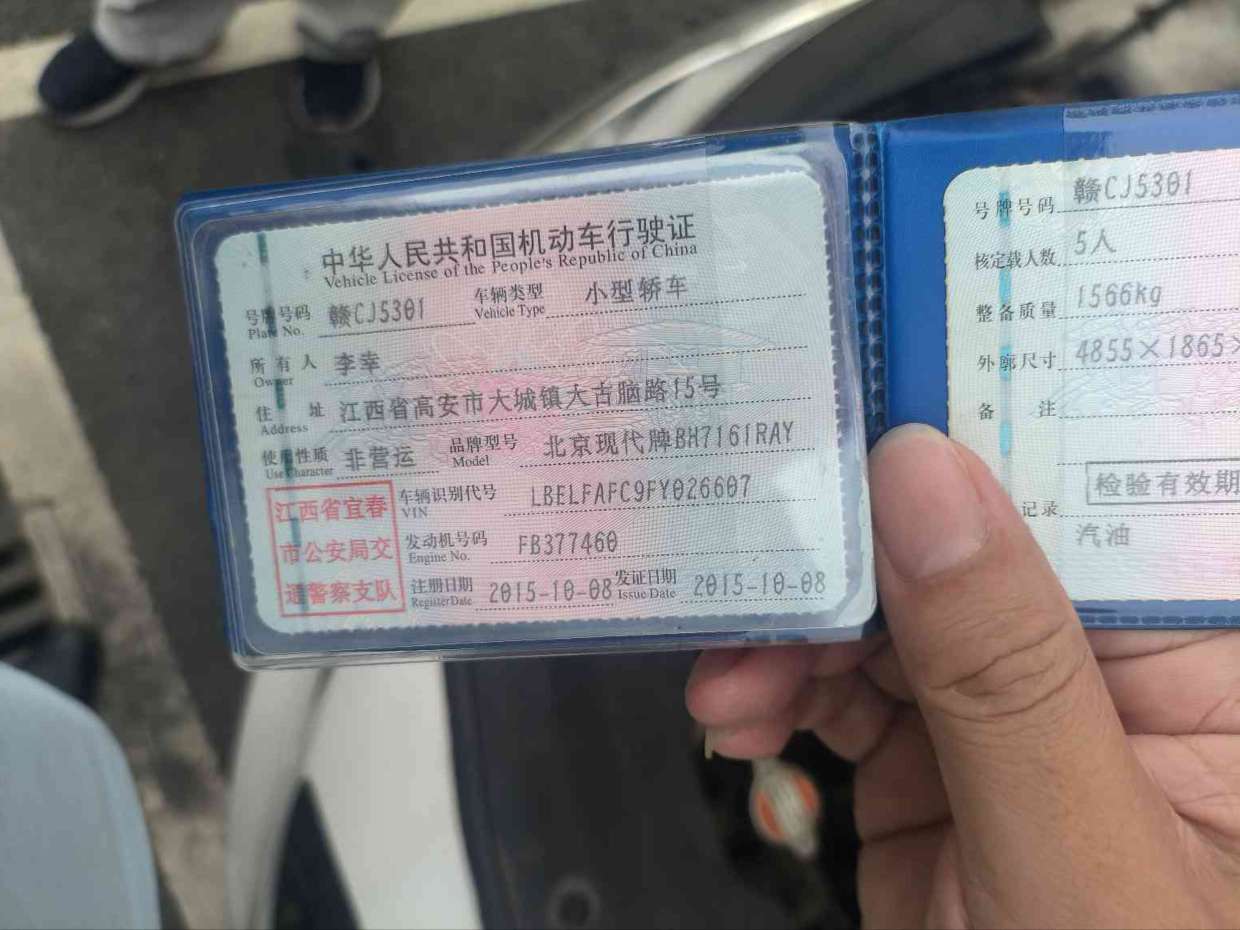 中华人民共和国机动车行驶证
Vehicle License of the People's Republic of China
号牌号码 赣CJ5301 车辆类型 小型轿车
Plate No. Vehicle Type
所有人 李幸
Owner
住址 江西省高安市大城镇大古脑路15号
Address
使用性质 非营运 品牌型号 北京现代牌BH7161RAY
Use Character Model
江西省宜春
市公安局交
通警察支队
车辆识别代号 LBELFAFC9FY026607
VIN
发动机号码 FB377460
Engine No.
注册日期 2015-10-08 发证日期 2015-10-08
Register Date Issue Date
号牌号码 赣CJ5301
核定载人数 5人
整备质量 1566kg
外廓尺寸 4855×1865×
备注
检验有效期
记录
汽油